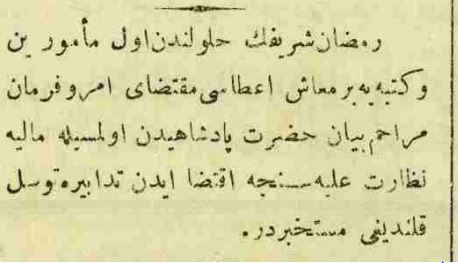 رمضان شریفك حلولندن اول مأمورین
وكتبه یه بر معاش اعطاسی مقتضای امر و فرمان
مراحم بیان حضرت پادشاهیدن اولمسیله مالیه
نظارت علیه سنجه اقتضا ایدن تدابیره توسل
قلندیغی مستخبردر.